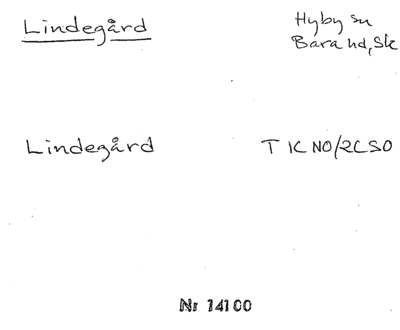 Lindegård
Hyby sn
Bara hd, Sk
Lindegård
T 1C NO/2C SO
Nr 14100